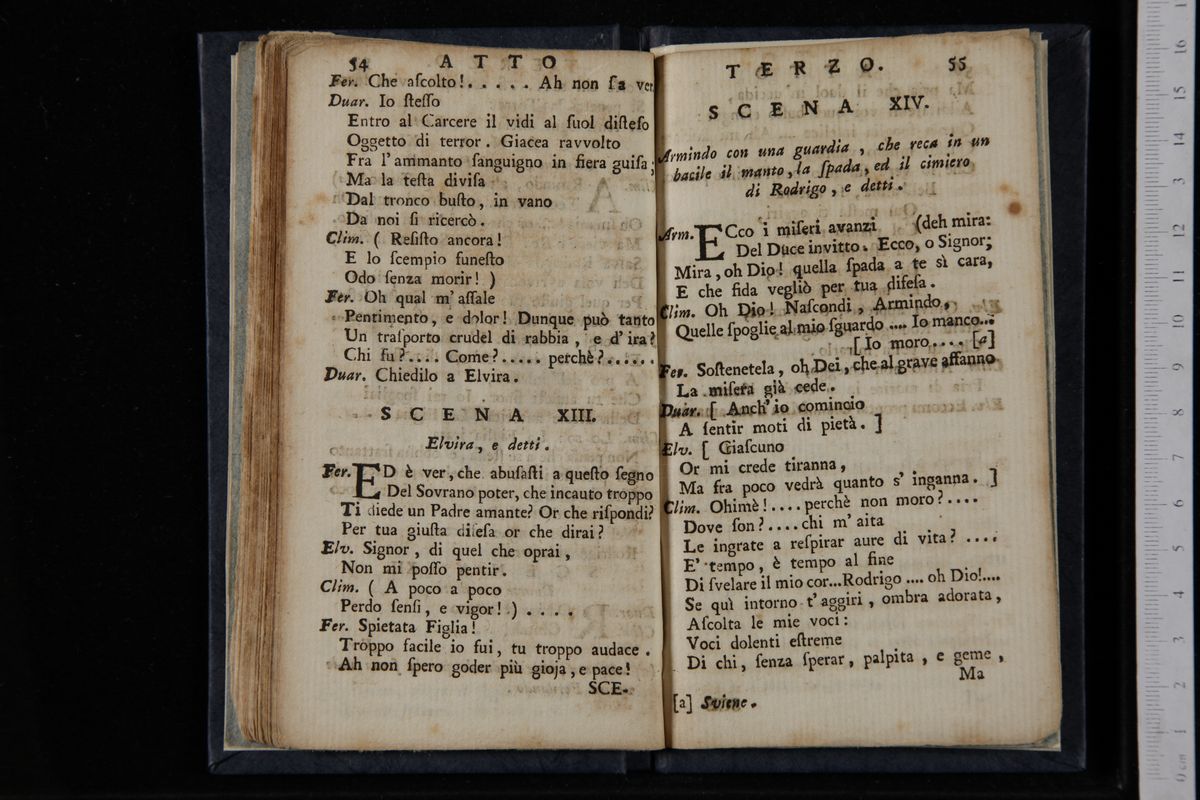 54 ATTO
Fer. Che aſcolto!..... Ah non ſa ver
Duar. Io ſteſſo
Entro al Carcere il vidi al ſuol diſteſo
Oggetto di terror. Giacea ravvolto
Fra l'ammanto ſanguigno in fiera guiſa;
Ma la teſta diviſa
Dal tronco buſto, in vano
Da noi ſi ricercò.
Clim. ( Reſiſto ancora!
E lo ſcempio funeſto
Odo ſenza morir! )
Fer. Oh qual m'aſſale
Pentimento, e dolor! Dunque può tanto
Un traſporto crudel di rabbia, e d'ira?
Chi fu?.... Come?..... perchè?.....
Duar. Chiedilo a Elvira.
SCENA XIII.
Elvira, e detti.
Fer. ED è ver, che abuſaſti a queſto ſegno
Del Sovrano poter, che incauto troppo
Ti diede un Padre amante? Or che riſpondi?
Per tua giuſta difeſa or che dirai?
Elv. Signor, di quel che oprai,
Non mi poſſo pentir.
Clim. ( A poco a poco
Perdo ſenſi, e vigor! )....
Fer. Spietata Figlia!
Troppo facile io fui, tu troppo audace.
Ah non ſpero goder più gioja, e pace!
SCE-
TERZO. 55
SCENA XIV.
Armindo con una guardia, che reca in un
bacile il manto, la ſpada, ed il cimiero
di Rodrigo, e detti.
Arm. ECco i miſeri avanzi (deh mira:
Del Duce invitto. Ecco, o Signor;
Mira, oh Dio! quella ſpada a te sì cara,
E che fida vegliò per tua difeſa.
Clim. Oh Dio! Naſcondi, Armindo,
Quelle ſpoglie al mio ſguardo .... Io manco...
[ Io moro.... [a]
Fer. Soſtenetela, oh Dei, che al grave affanno
La miſera già cede.
Duar. [ Anch' io comincio
A ſentir moti di pietà. ]
Elv. [ Giaſcuno
Or mi crede tiranna,
Ma fra poco vedrà quanto s' inganna. ]
Clim. Ohimè!.... perchè non moro?....
Dove ſon?....chi m' aita
Le ingrate a reſpirar aure di vita? ....
E' tempo, è tempo al fine
Di ſvelare il mio cor...Rodrigo .... oh Dio!....
Se quì intorno t'aggiri, ombra adorata,
Aſcolta le mie voci:
Voci dolenti eſtreme
Di chi, ſenza ſperar, palpita, e geme,
Ma
[a] Sviene.